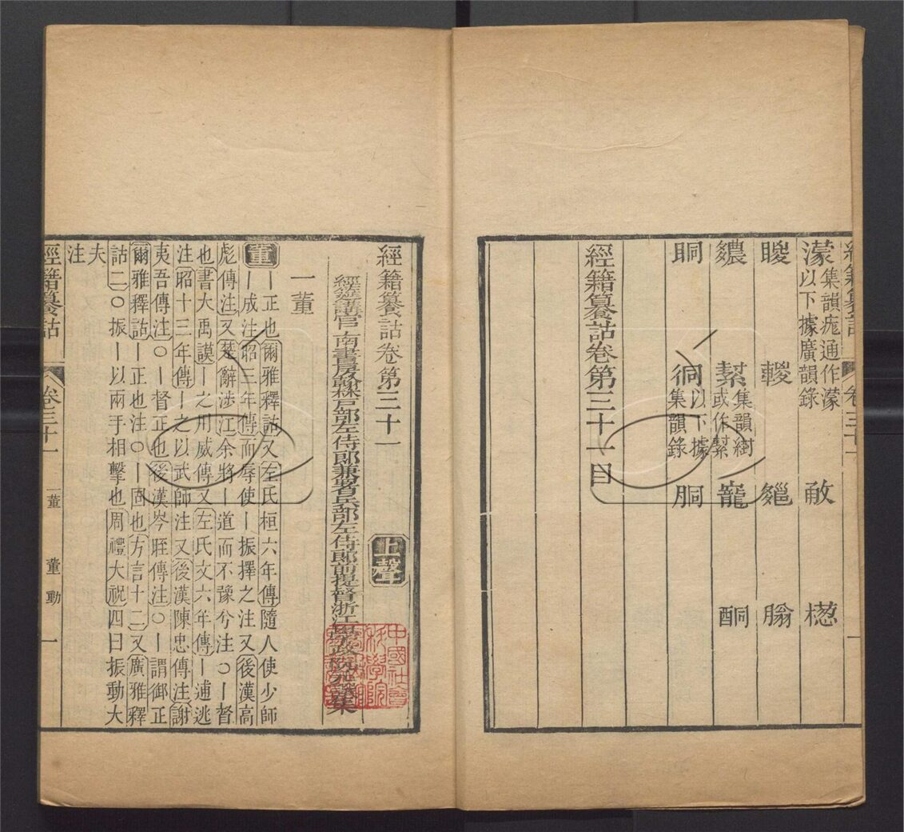 濛集韻痝通作濛以下據廣韻錄 㪉 㮤
䁓 䡯 䐋
繷 䋽集韻緅或作䋽 寵 酮
眮 䂈以下據集韻錄 胴
經籍籑詁卷第三十一目
經籍籑詁卷第三十一 上聲
經筵講官南書房翰林戶部左侍郎兼署兵部左侍郎前提督浙江學政阮元譔集
一董
董 ー正也爾雅釋詁又左氏桓六年傳隨人使少師
ー成注昭三年傳而辱使ー振擇之注又後漢高
彪傳注又楚辭涉江余將ー道而不豫兮注○ー督
也書大禹謨ー之用威傳又左氏文六年傳ー逋逃
注昭十三年傳ーー之以武師注又後漢陳忠傳注謝
夷吾傳注○ー督正也後漢岑晊傳注○ー謂御正
爾雅釋詁ー正也注○ー固也方言十二又廣雅釋
詁二○振ー以兩手相擊也周禮大祝四曰振動大
夫注
經籍籑詁 卷三十一 一董 董 動 一
中國社會科學院